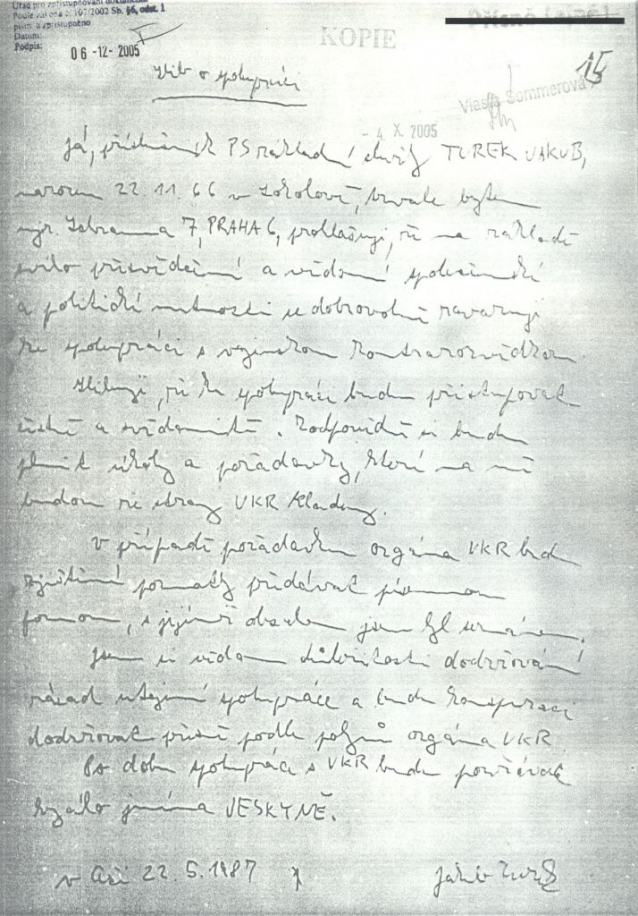 Úřad pro zpřístupňování dokumentů
Podle zákona č. 107/2002 Sb.
Datum: 06-12-2005
Podpis:
KOPIE
15
Vlasta Sommerová
- 4 X. 2005
Slib o spolupráci
Já, příslušník PS základní služby TUREK JAKUB,
narozen 22. 11. 66 v Sokolově, trvale bytem
7, PRAHA 6, prohlašuji, že na základě
svého přesvědčení a vědomí společenské
a politické nutnosti se dobrovolně zavazuji
ke spolupráci s vojenskou kontrarozvědkou.
Slibuji, že ke spolupráci budu přistupovat
čestně a svědomitě. Zodpovědně si budu
plnit úkoly a požadavky, které na mě
budou ze strany VKR kladeny.
V případě požadavku orgána VKR budu
zjištěné poznatky předávat písemnou
formou, s jejímž obsahem jsem byl seznámen.
Jsem si vědom důležitosti dodržování
zásad utajení spolupráce a budu konspiraci
dodržovat přesně podle pokynů orgána VKR.
Po dobu spolupráce s VKR budu používat
krycího jména JESKYNĚ.
V Aši 22. 5. 1987
Jakub Turek